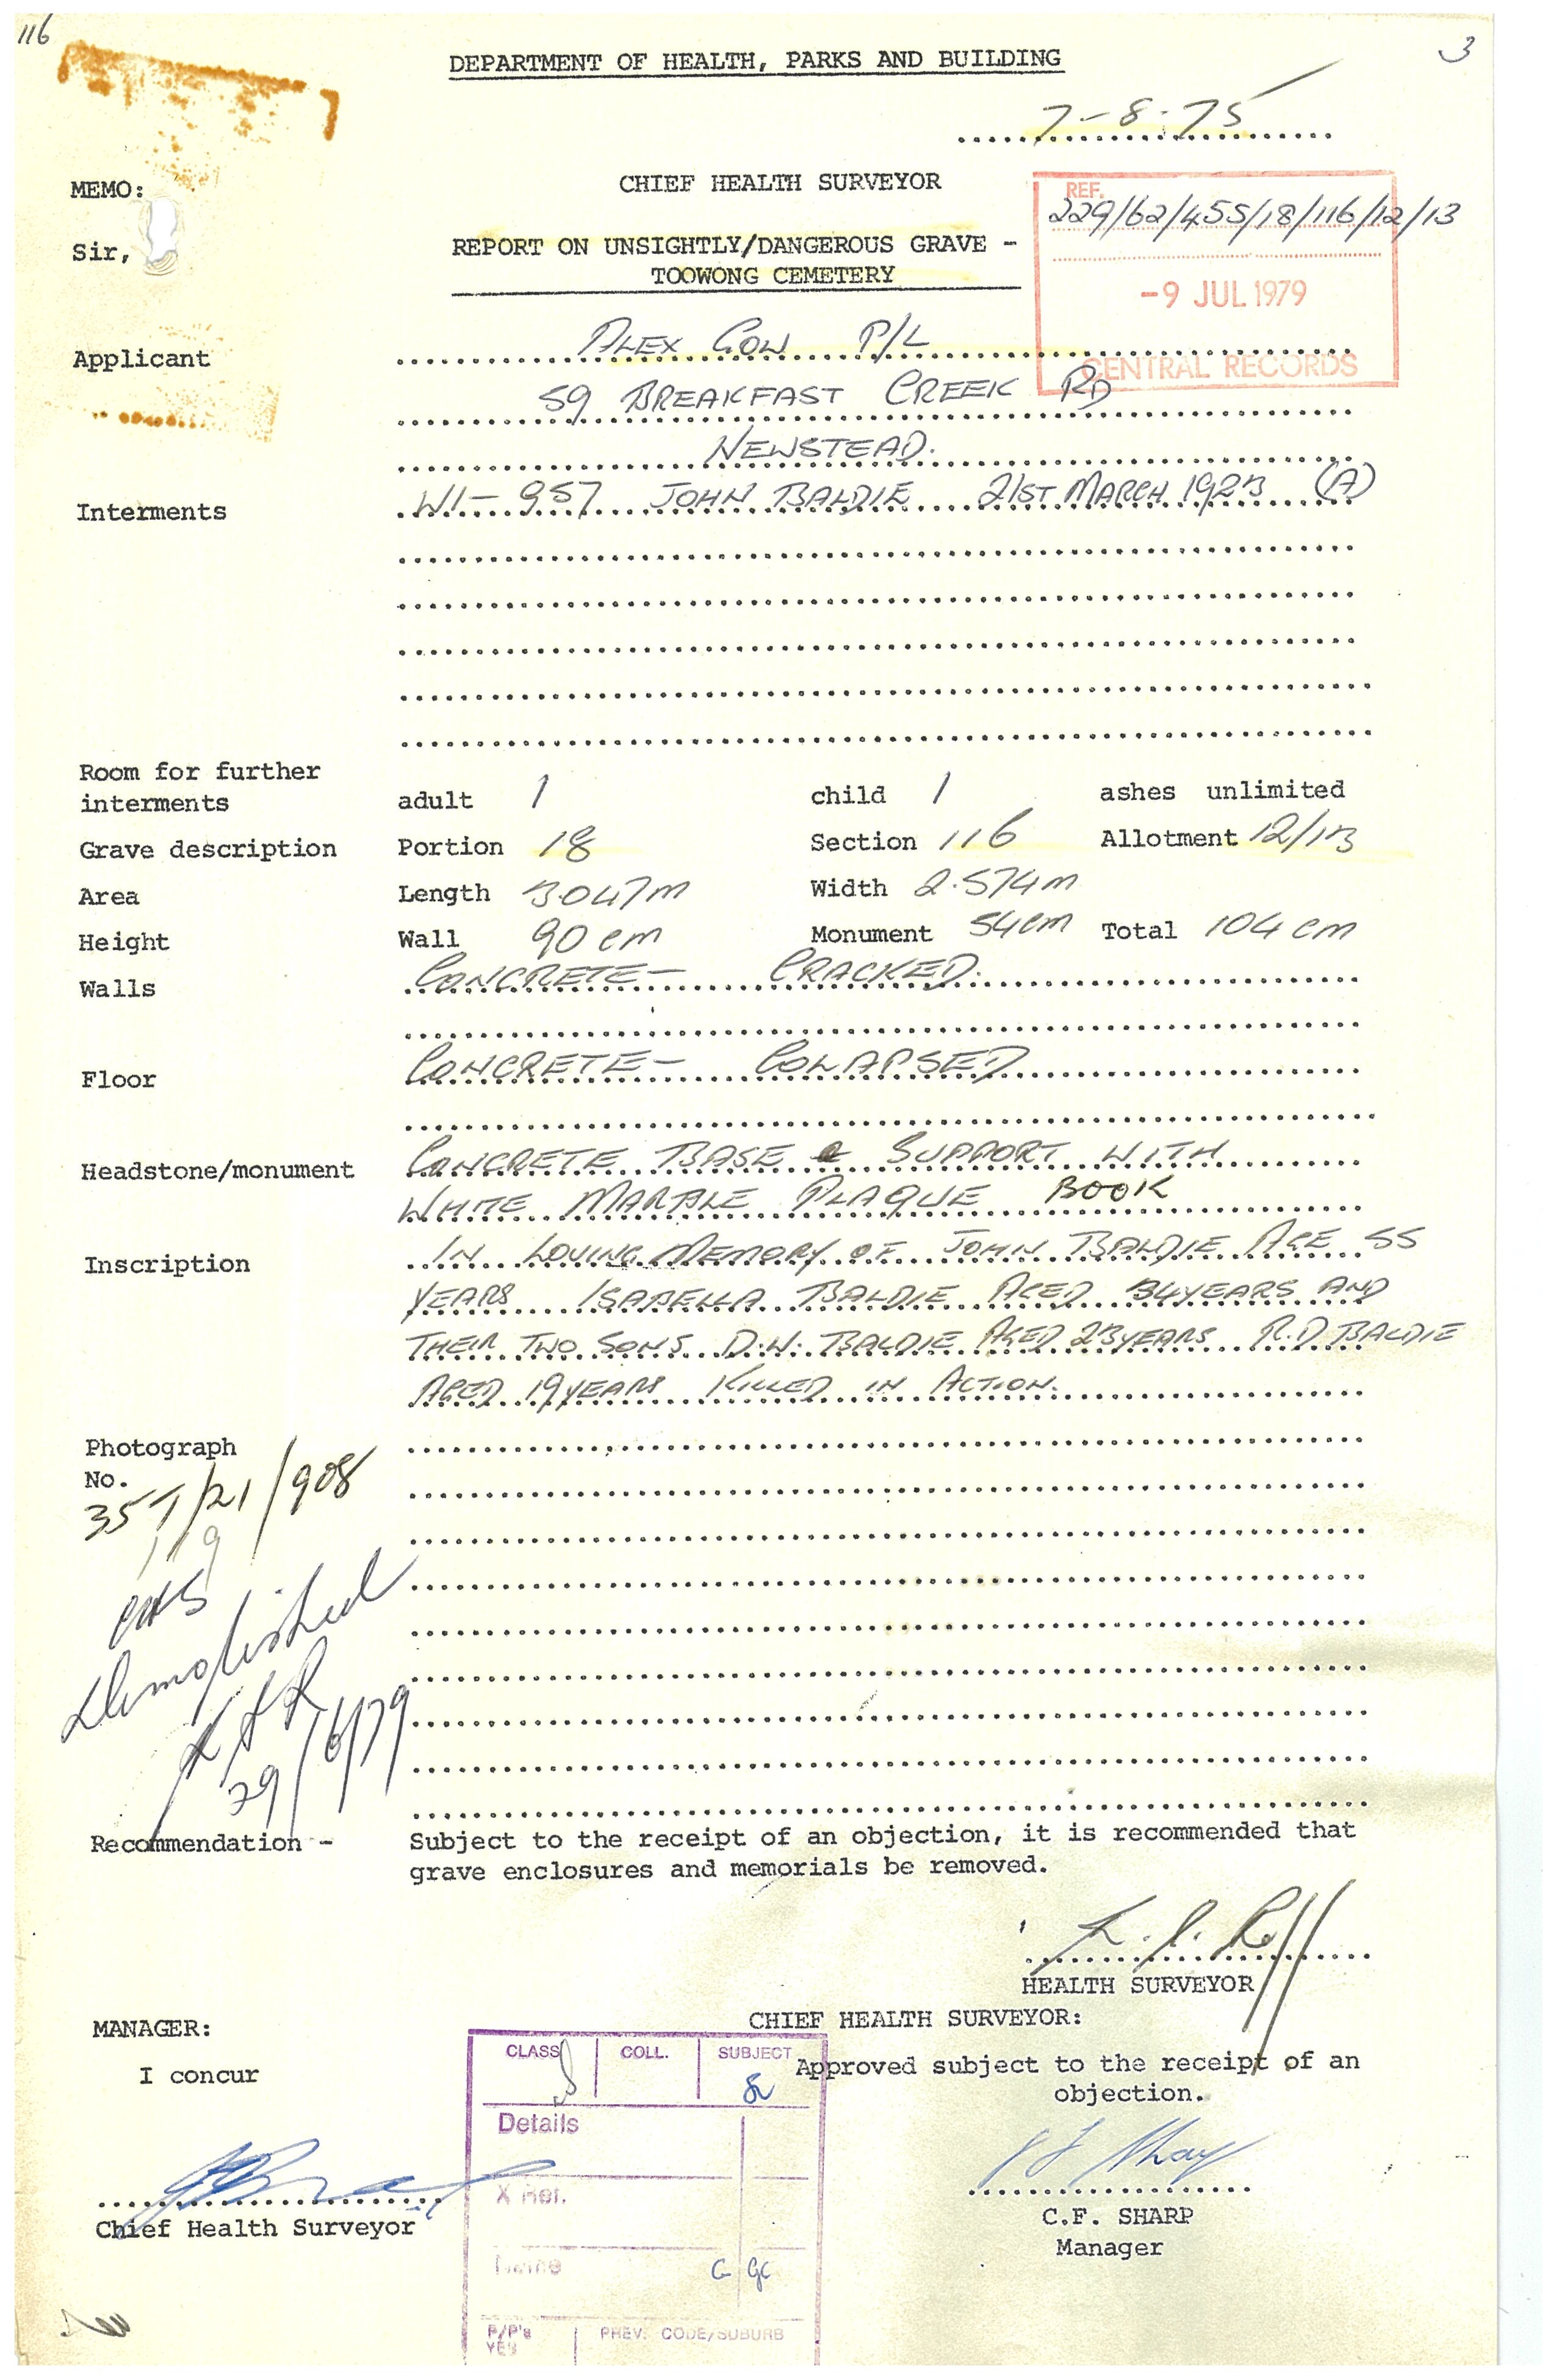 116
3
DEPARTMENT OF HEALTH, PARKS AND BUILDING
7-8-75
MEMO:
CHIEF HEALTH SURVEYOR
REF.
229/62/455/18/116/12/13
Sir,
REPORT ON UNSIGHTLY/DANGEROUS GRAVE -
TOOWONG CEMETERY
-9 JUL 1979
CENTRAL RECORDS
Applicant ALEX GOW P/L
59 BREAKFAST CREEK RD
NEWSTEAD.
Interments W1-957 JOHN BALDIE 21ST MARCH 1923 (A)
Room for further
interments adult 1 child 1 ashes unlimited
Grave description Portion 18 Section 116 Allotment 12/13
Area Length 3.047m Width 2.574m
Height Wall 90 cm Monument 54cm Total 104 cm
Walls CONCRETE - CRACKED.
Floor CONCRETE - COLAPSED
Headstone/monument CONCRETE BASE & SUPPORT WITH
WHITE MARBLE PLAQUE BOOK
Inscription IN LOVING MEMORY OF JOHN BALDIE AGE 55
YEARS ISABELLA BALDIE AGED 34 YEARS AND
THEIR TWO SONS D.W. BALDIE AGED 23 YEARS R.D BALDIE
AGED 19 YEARS KILLED IN ACTION.
Photograph
No.
357/21/908
119
Demolished
29/6/79
Recommendation - Subject to the receipt of an objection, it is recommended that
grave enclosures and memorials be removed.
HEALTH SURVEYOR
MANAGER:
CHIEF HEALTH SURVEYOR:
I concur
Approved subject to the receipt of an
objection.
CLASS COLL. SUBJECT
Details
X Ref.
Name
G GC
P/P's
YES
PREV. CODE/SUBURB
Chief Health Surveyor
C.F. SHARP
Manager